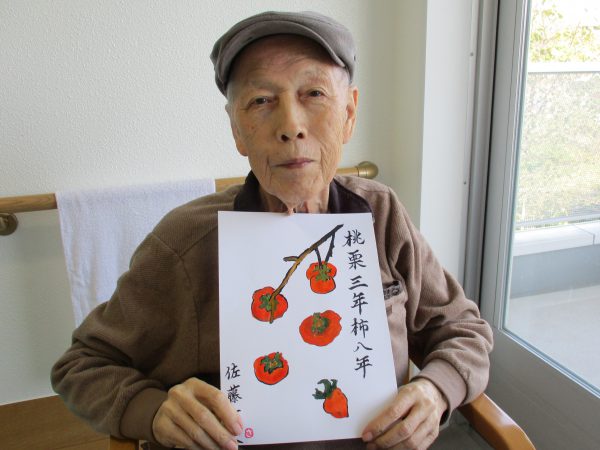 桃栗三年柿八年
佐藤